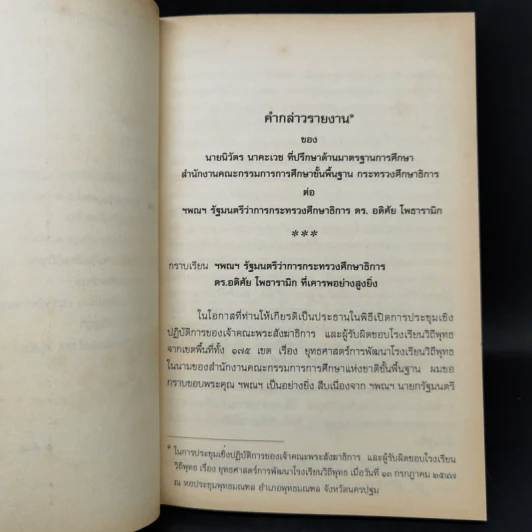 คำกล่าวรายงาน*
ของ
นายนิวัตร นาคะเวช ที่ปรึกษาด้านมาตรฐานการศึกษา
สำนักงานคณะกรรมการการศึกษาขั้นพื้นฐาน กระทรวงศึกษาธิการ
ต่อ
ฯพณฯ รัฐมนตรีว่าการกระทรวงศึกษาธิการ ดร. อดิศัย โพธารามิก
***
กราบเรียน ฯพณฯ รัฐมนตรีว่าการกระทรวงศึกษาธิการ
ดร.อดิศัย โพธารามิก ที่เคารพอย่างสูงยิ่ง
ในโอกาสที่ท่านให้เกียรติเป็นประธานในพิธีเปิดการประชุมเชิง
ปฏิบัติการของเจ้าคณะพระสังฆาธิการ และผู้รับผิดชอบโรงเรียนวิถีพุทธ
จากเขตพื้นที่ทั้ง ๑๗๕ เขต เรื่อง ยุทธศาสตร์การพัฒนาโรงเรียนวิถีพุทธ
ในนามของสำนักงานคณะกรรมการการศึกษาแห่งชาติขั้นพื้นฐาน ผมขอ
กราบขอบพระคุณ ฯพณฯ เป็นอย่างยิ่ง สืบเนื่องจาก ฯพณฯ นายกรัฐมนตรี
* ในการประชุมเชิงปฏิบัติการของเจ้าคณะพระสังฆาธิการ และผู้รับผิดชอบโรงเรียน
วิถีพุทธ เรื่อง ยุทธศาสตร์การพัฒนาโรงเรียนวิถีพุทธ เมื่อวันที่ ๑๓ กรกฎาคม ๒๕๔๗
ณ หอประชุมพุทธมณฑล อำเภอพุทธมณฑล จังหวัดนครปฐม